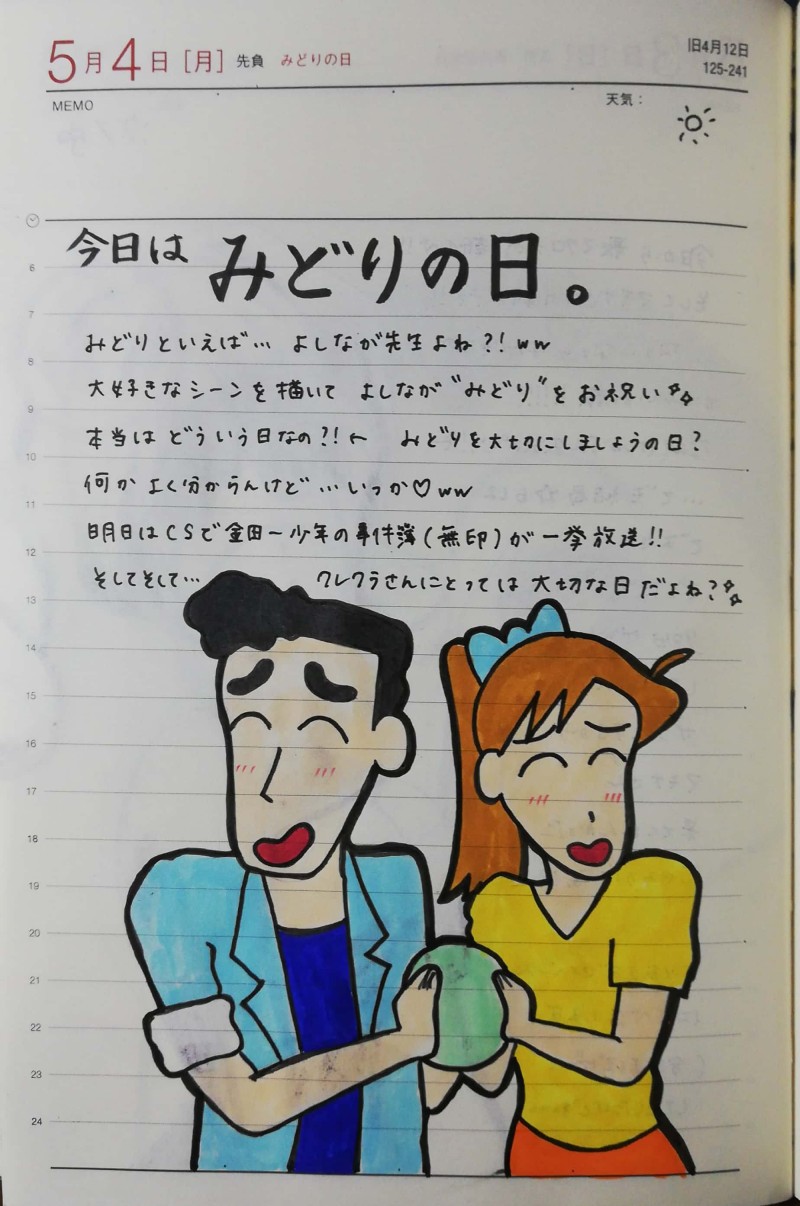 5月4日[月] 先負 みどりの日
旧4月12日
125-241
MEMO
天気：
今日は みどりの日。
みどりといえば… よしなが先生よね?!ww
大好きなシーンを描いて よしなが"みどり"をお祝い
本当は どういう日なの?!← みどりを大切にしましょうの日?
何か よく分からんけど …いっか♡ww
明日はCSで金田一少年の事件簿(無印)が一挙放送!!
そしてそして… クレクラさんにとっては 大切な日だよね?
6
7
8
9
10
11
12
13
14
15
16
17
18
19
20
21
22
23
24